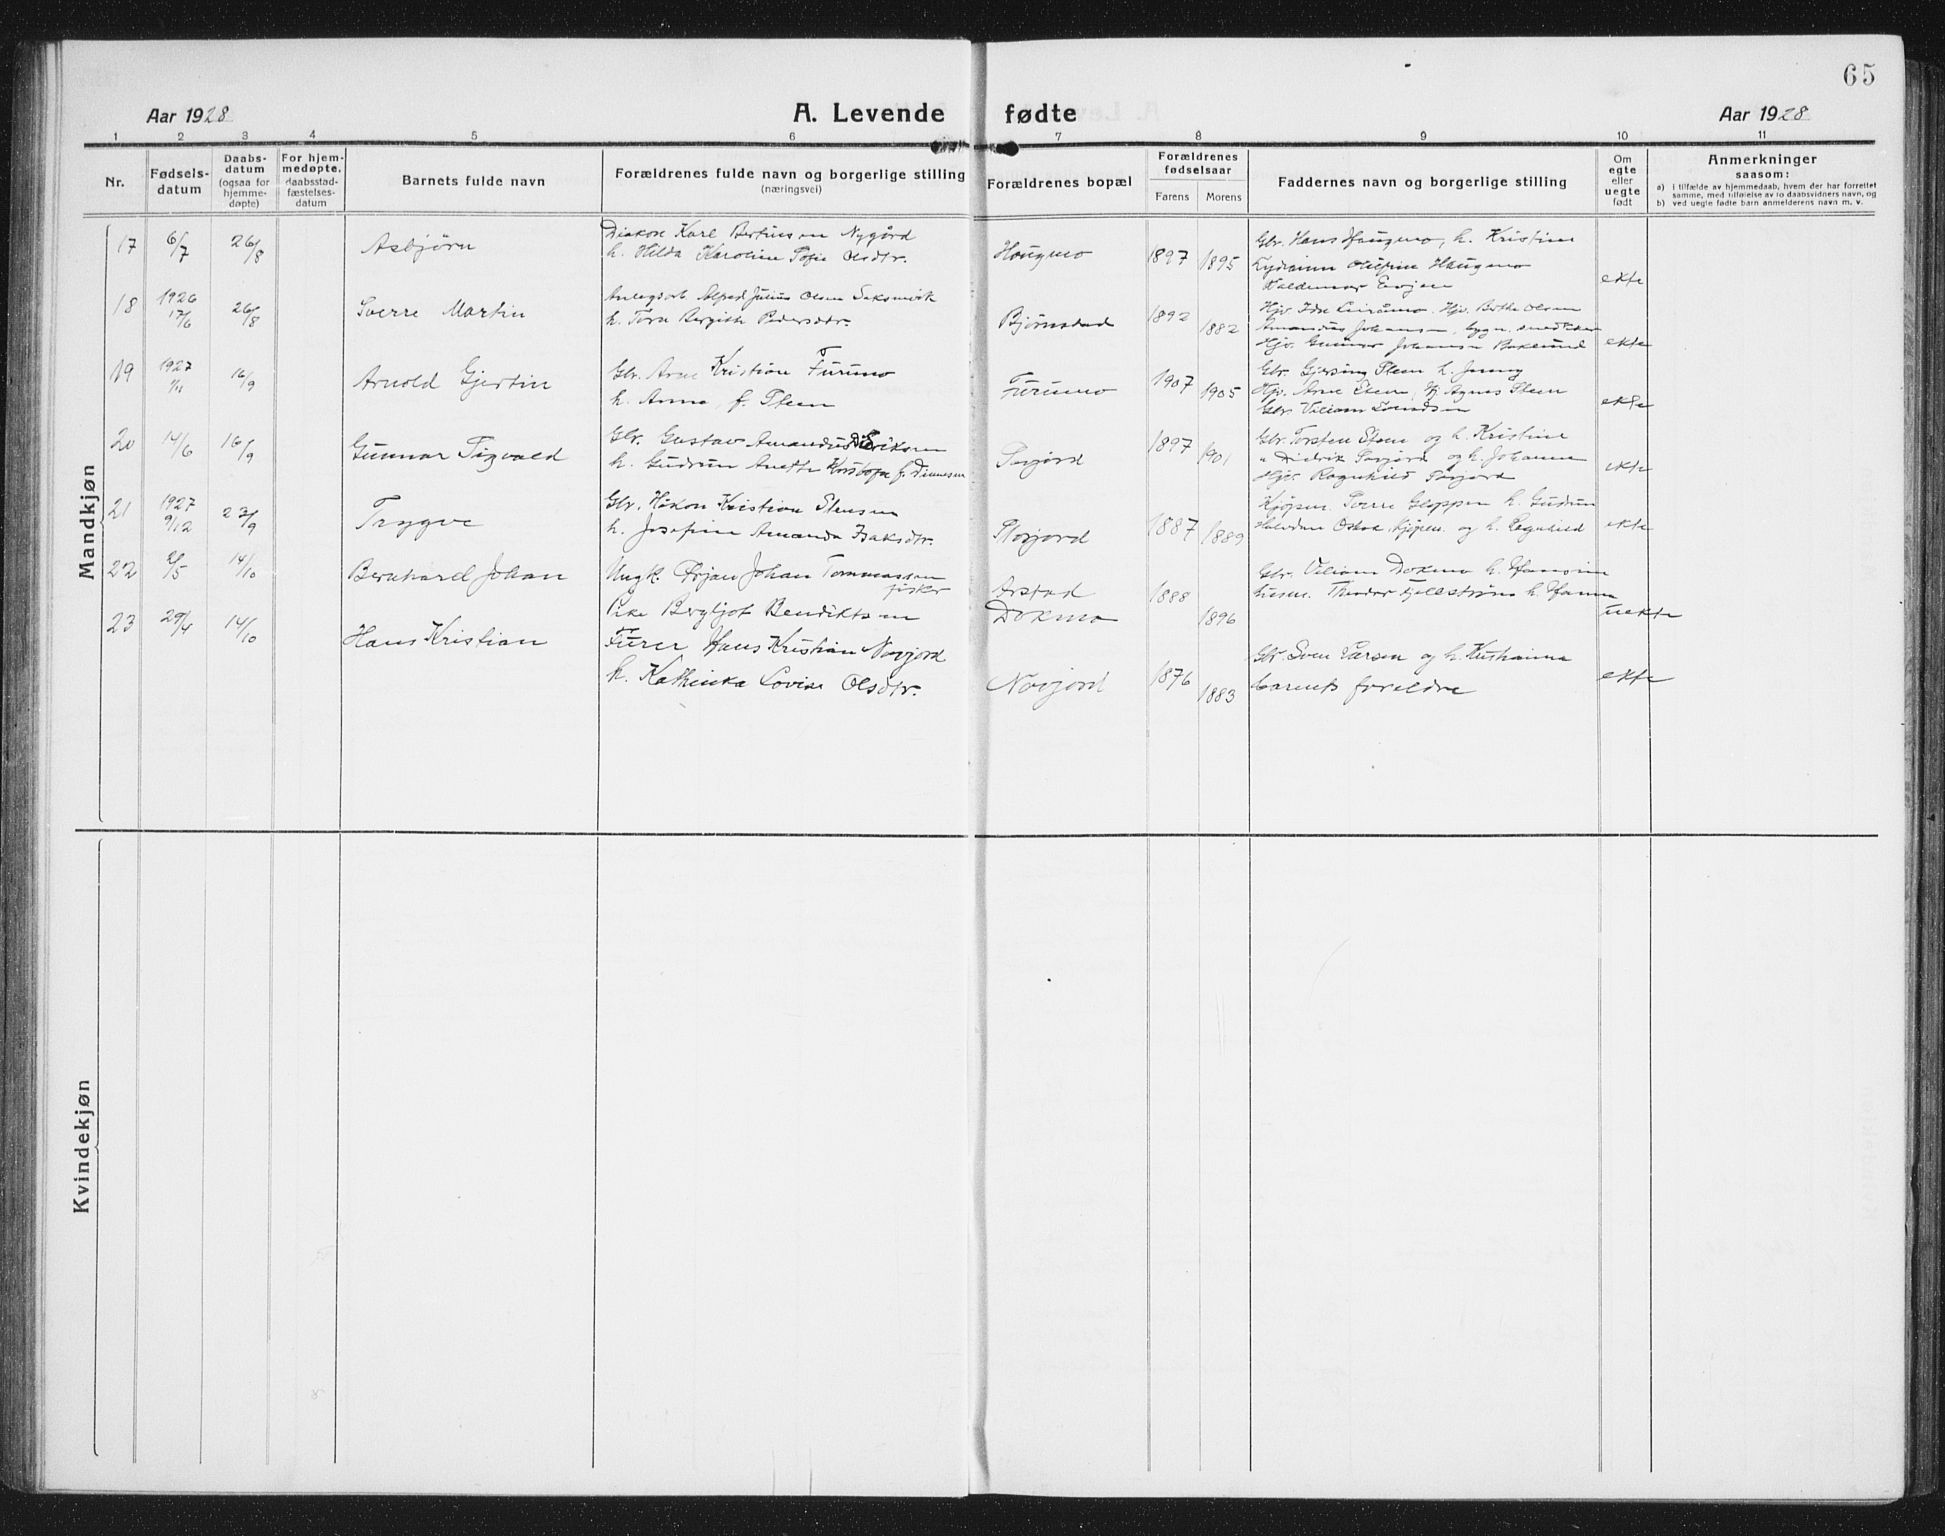 65
Aar 1928
A. Levende fødte
Aar 1928
1 2 3 4 5 6 7 8 9 10 11
Nr.
Fødsels-
datum
Daabs-
datum
(ogsaa for
hjemme-
døpte)
For hjem-
medøpte,
daabsstad-
fæstelses-
datum
Barnets fulde navn
Forældrenes fulde navn og borgerlige stilling
(næringsvei)
Forældrenes bopæl
Forældrenes
fødselsaar
Farens Morens
Faddernes navn og borgerlige stilling
Om
egte
eller
uegte
født
Anmerkninger
saasom:
a) i tilfælde av hjemmedaab, hvem der har forrettet
samme, med tilføielse av to daabsvidners navn, og
b) ved uegte fødte barn anmelderens navn m. v.
Mandkjøn
17 6/7 26/8 Asbjørn
Diakon Karl Bertinsen Nygård
h. Hilda Karoline Sofie Olsdtr.
Haugmo 1897 1895
Gbr. Hans Haugmo, h. Kristine
Haugmo
ekte
18 1926 17/6 26/8 Sverre Martin
Anlegsarb. Alfred Julius Olsen
h. Tora Bergithe Pedersdtr.
Bjørnstad 1892 1882
Olsen
Amandus Johansen,
Hjv. Gunnar Johansen
ekte
19 1927 16/9 Arnold Gjertin
Gbr. Arne Kristian Furumo
h. Anna, f. Steen
Furumo 1907 1905
Gbr. Steen h. Jenny
Hjv. Arne Steen, Hj. Agnes Steen
Gbr. Viliam
ekte
20 14/6 16/9 Gunnar Sigvald
Gbr. Gustav Amandus
h. Gudrun Anette
1897 1901
Gbr. Torsten Steen og h. Kristine
" Didrik og h. Johanna
Hjv. Ragnhild
ekte
21 1927 9/12 23/9 Trygve
Gbr. Håkon Kristian Stensen
h. Josefine Amanda Isaksdtr.
Storjord 1887 1889
Kjøpm. Sverre Gloppen h. Gudrun
kjøpm. og h. Ragnhild
ekte
22 2/5 14/10 Bernhard Johan
Ungk. Ørjan Johan Tommassen
fisker
Pike Bergljot Bendiktsen
Arstad
Dokmo
1888 1896
Gbr. Viliam Dokmo h.
Theodor
uekte
23 29/4 14/10 Hans Kristian
Furer Hans Kristian Novjord
h. Kathinka Lovise Olsdtr.
Novjord 1876 1883
Gbr. Sven Larsen og h. Kristianna
barnets foreldre
ekte
Kvindekjøn